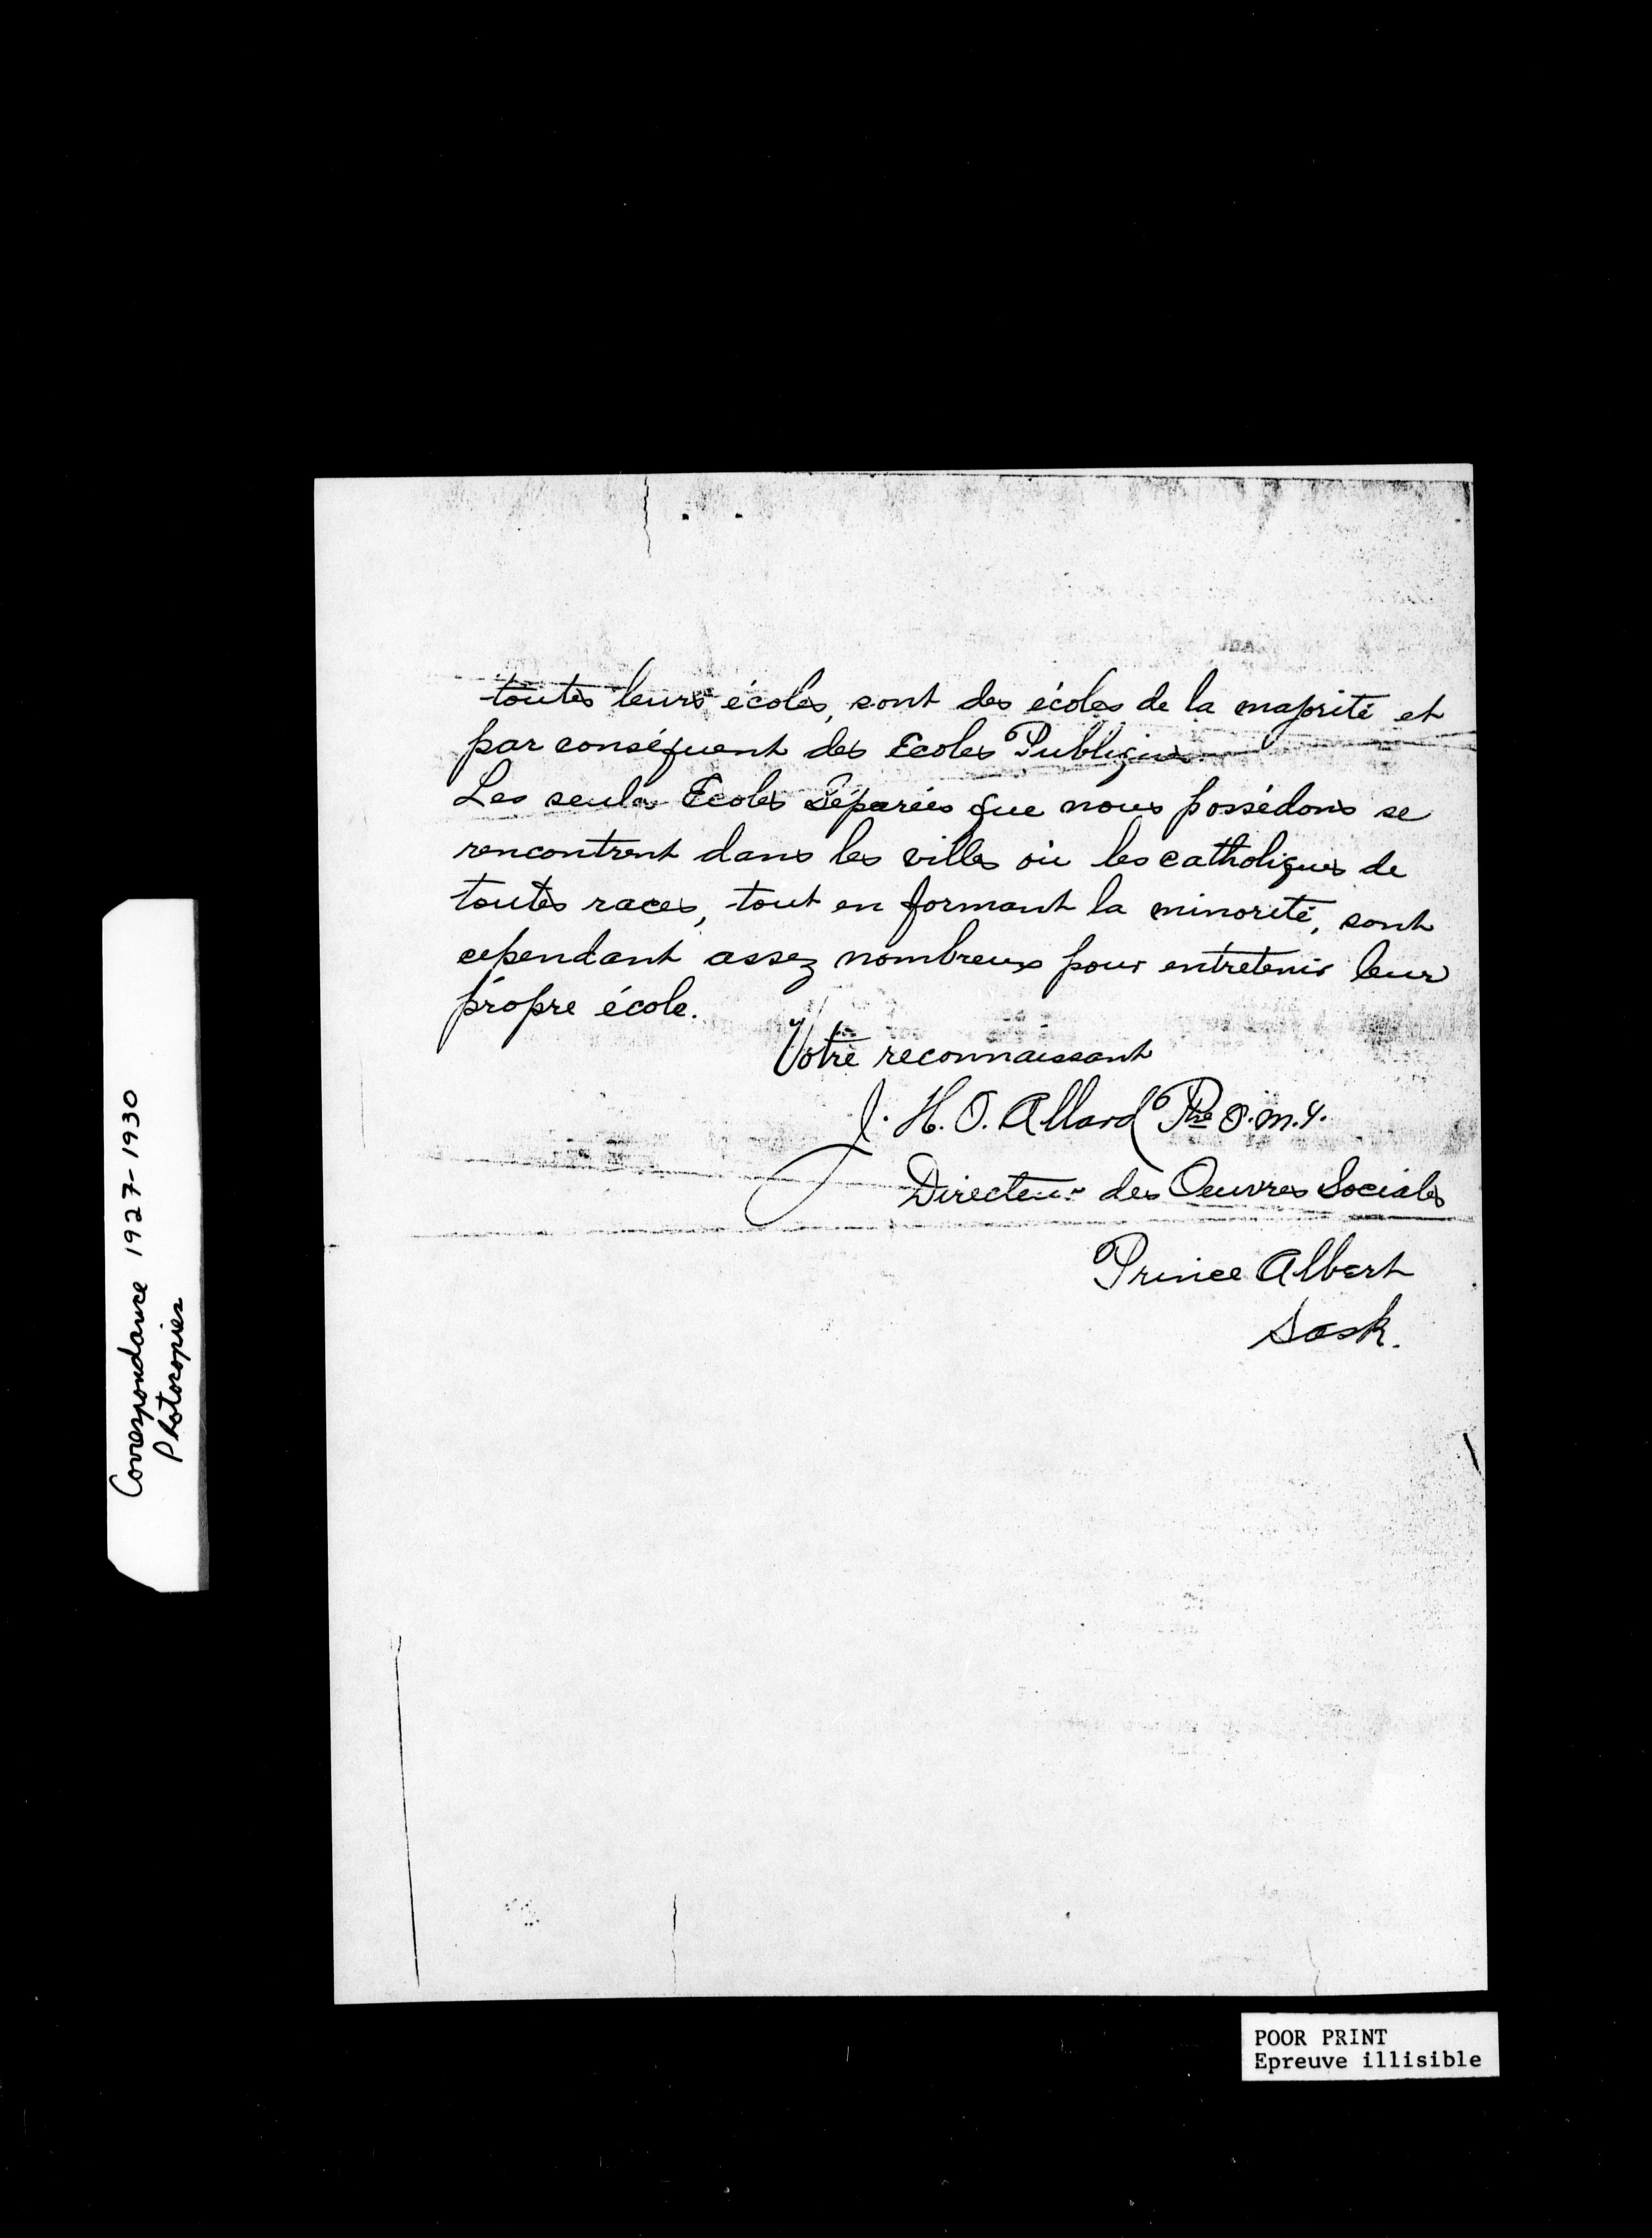 toutes leurs écoles, sont des écoles de la majorité et
par conséquent des Ecoles Publiques
Les seules Ecoles Séparées que nous possédons se
rencontrent dans les villes où les catholiques de
toutes races, tout en formant la minorité, sont
cependant assez nombreux pour entretenir leur
propre école.
Votre reconnaissant
J. H. O. Allard Ptre O.M.I.
Directeur des Oeuvres Sociales
Prince Albert
Sask.
Correspondance 1927-1930
Photocopies
POOR PRINT
Epreuve illisible